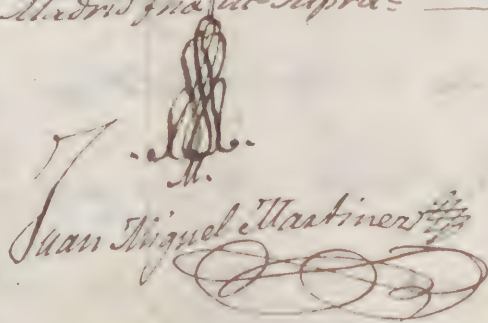 Madrid fha ut supra=
M.
Juan Miguel Martinez